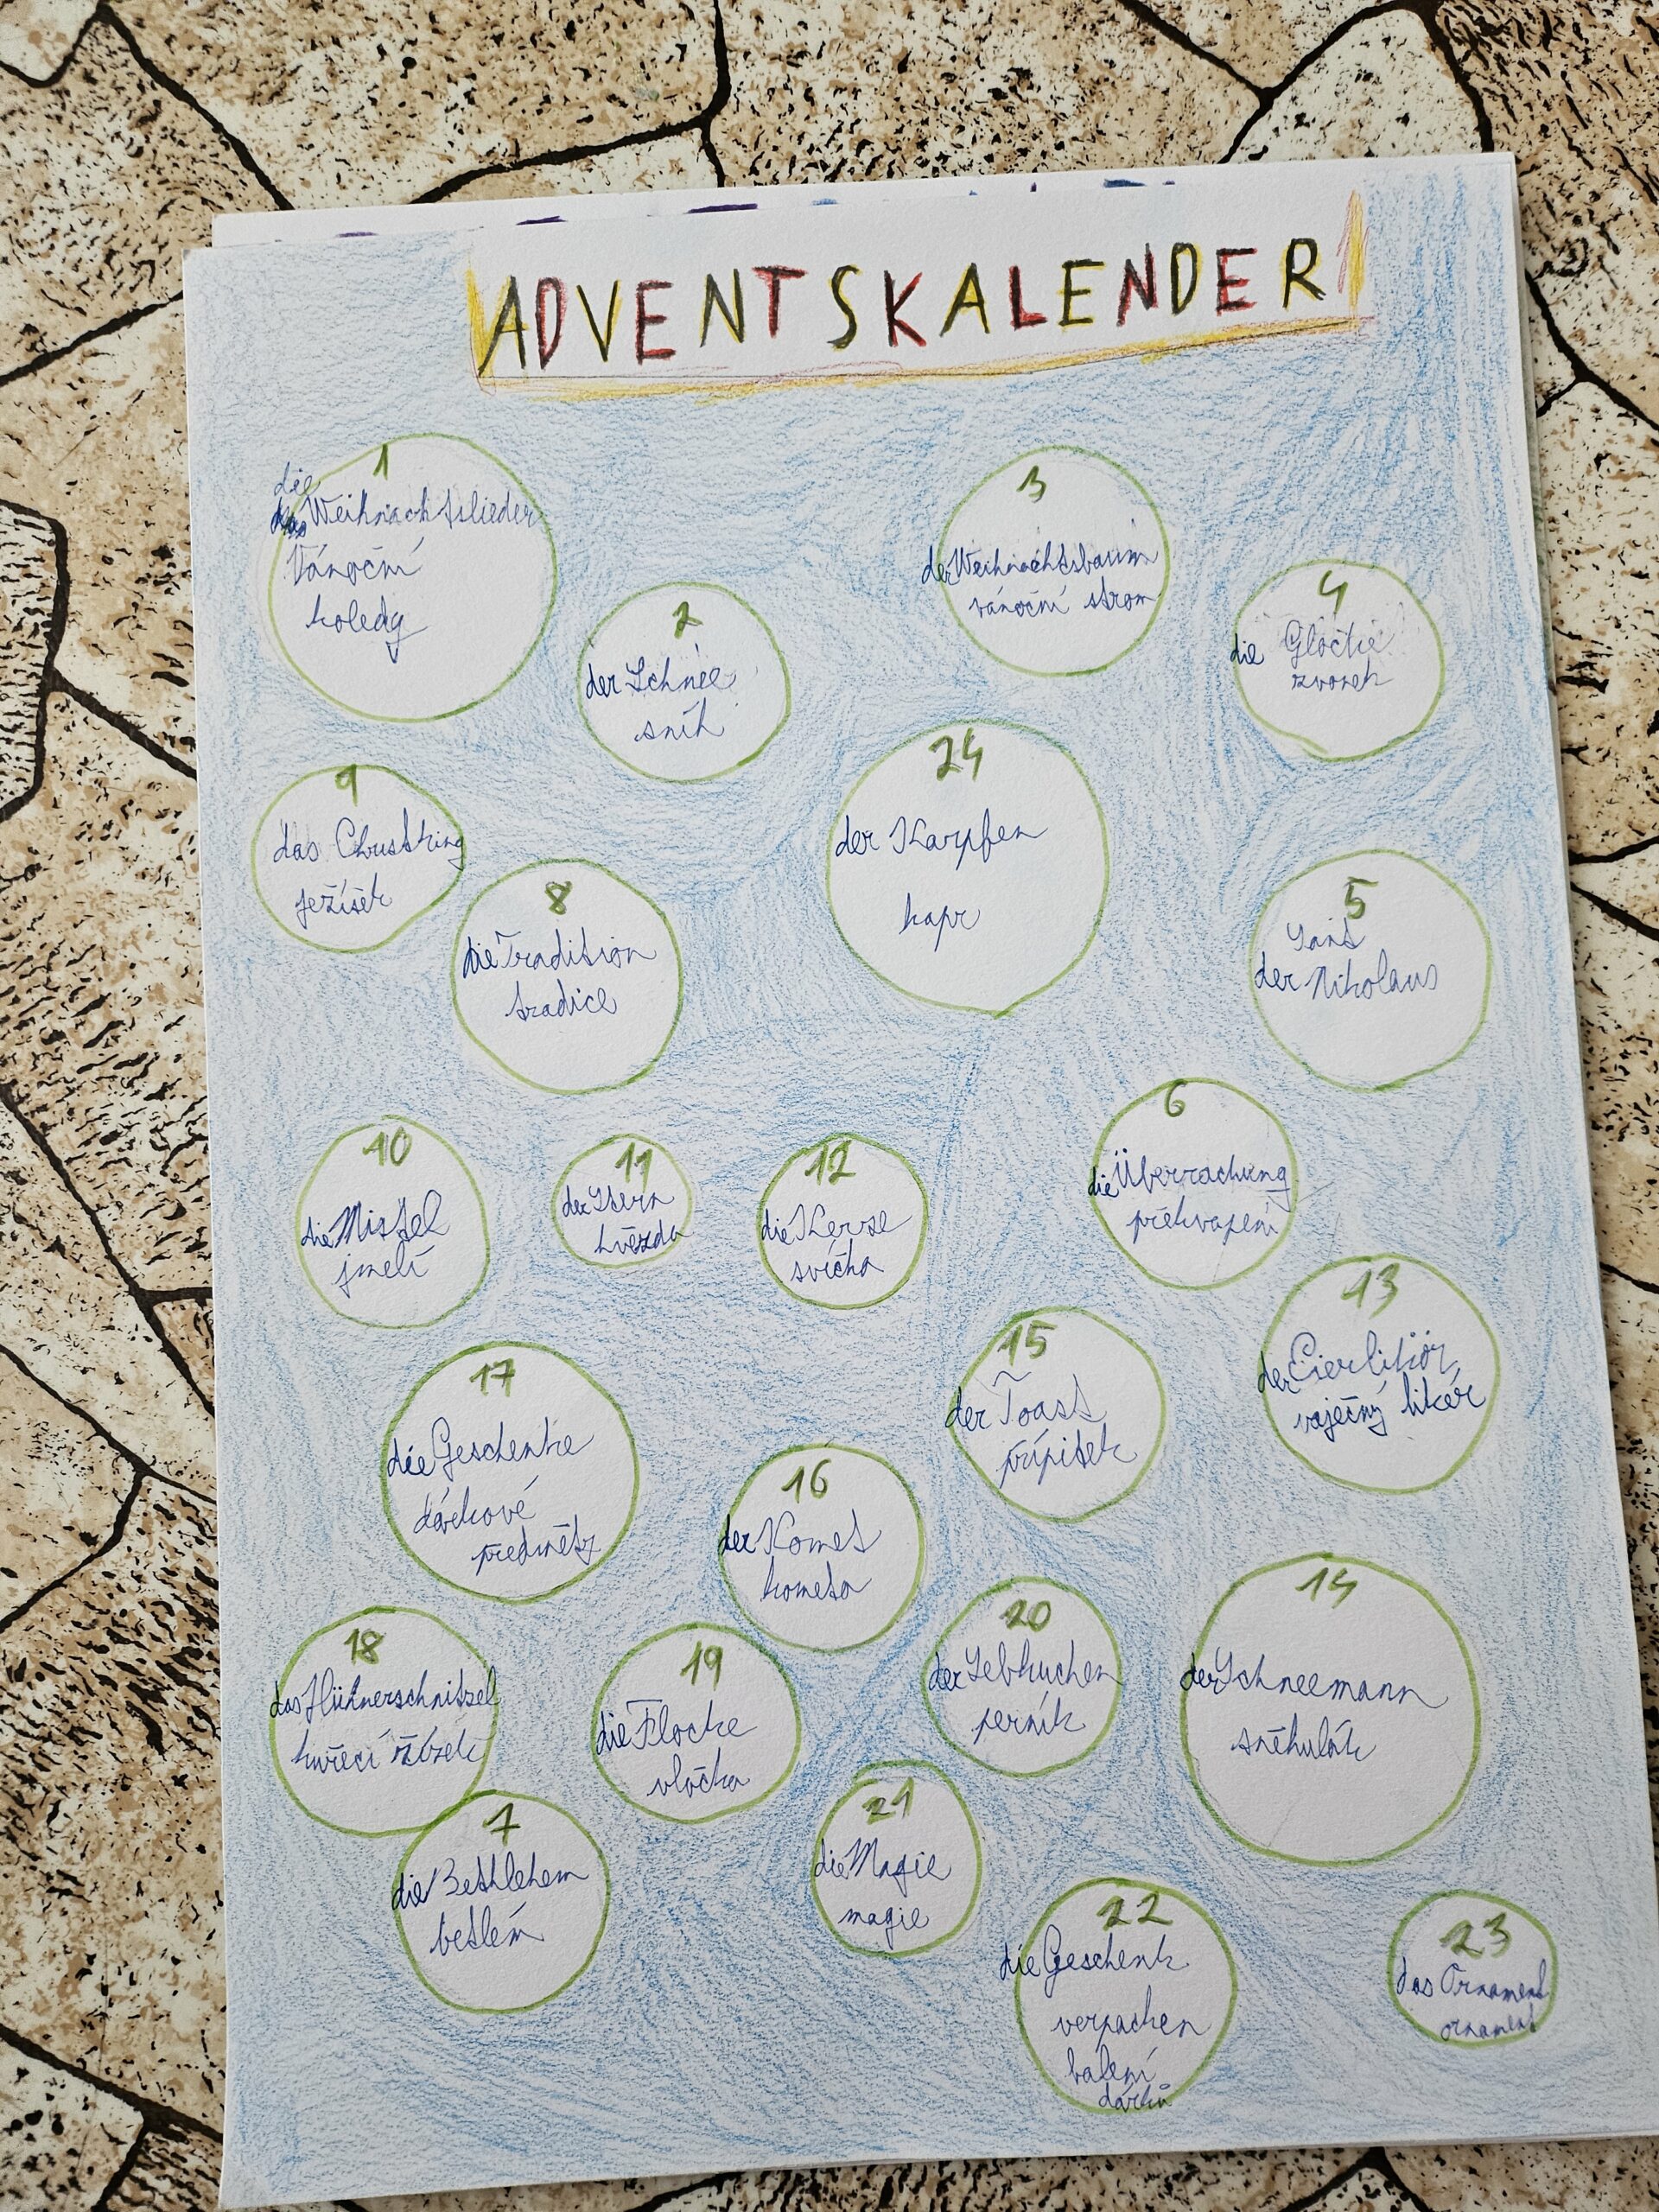 ADVENTSKALENDER
1
die
Weihnachtslieder
Vánoční
koledy
2
der Schnee
sníh
3
der Weihnachtsbaum
vánoční strom
4
die Glocke
zvonek
9
das Christking
ježíšek
8
die Tradition
tradice
24
der Karpfen
kapr
5
Sant
der Nikolaus
10
die Mistel
jmelí
11
der Stern
hvězda
12
die Kerze
svíčka
6
die Überrachung
překvapení
13
der Eierlikör
vaječný likér
17
die Geschenke
dárkové
předměty
15
der Toast
přípitek
16
der Komet
kometa
14
der Schneemann
sněhulák
18
das Hühnerschnitzel
kuřecí řízek
19
die Flocke
vločka
20
der Lebkuchen
perník
7
die Bethlehem
betlém
21
die Magie
magie
22
die Geschenk
verpacken
balení
dárků
23
das Ornament
ornament